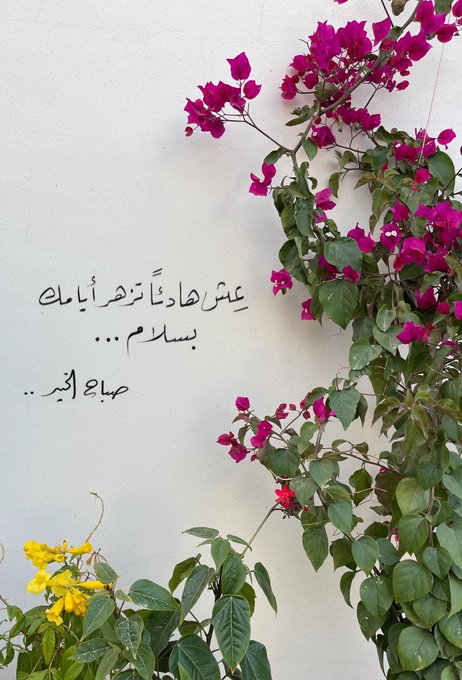 عِش هادئاً تزهر أيامك
بسلام ...
صباح الخير ..